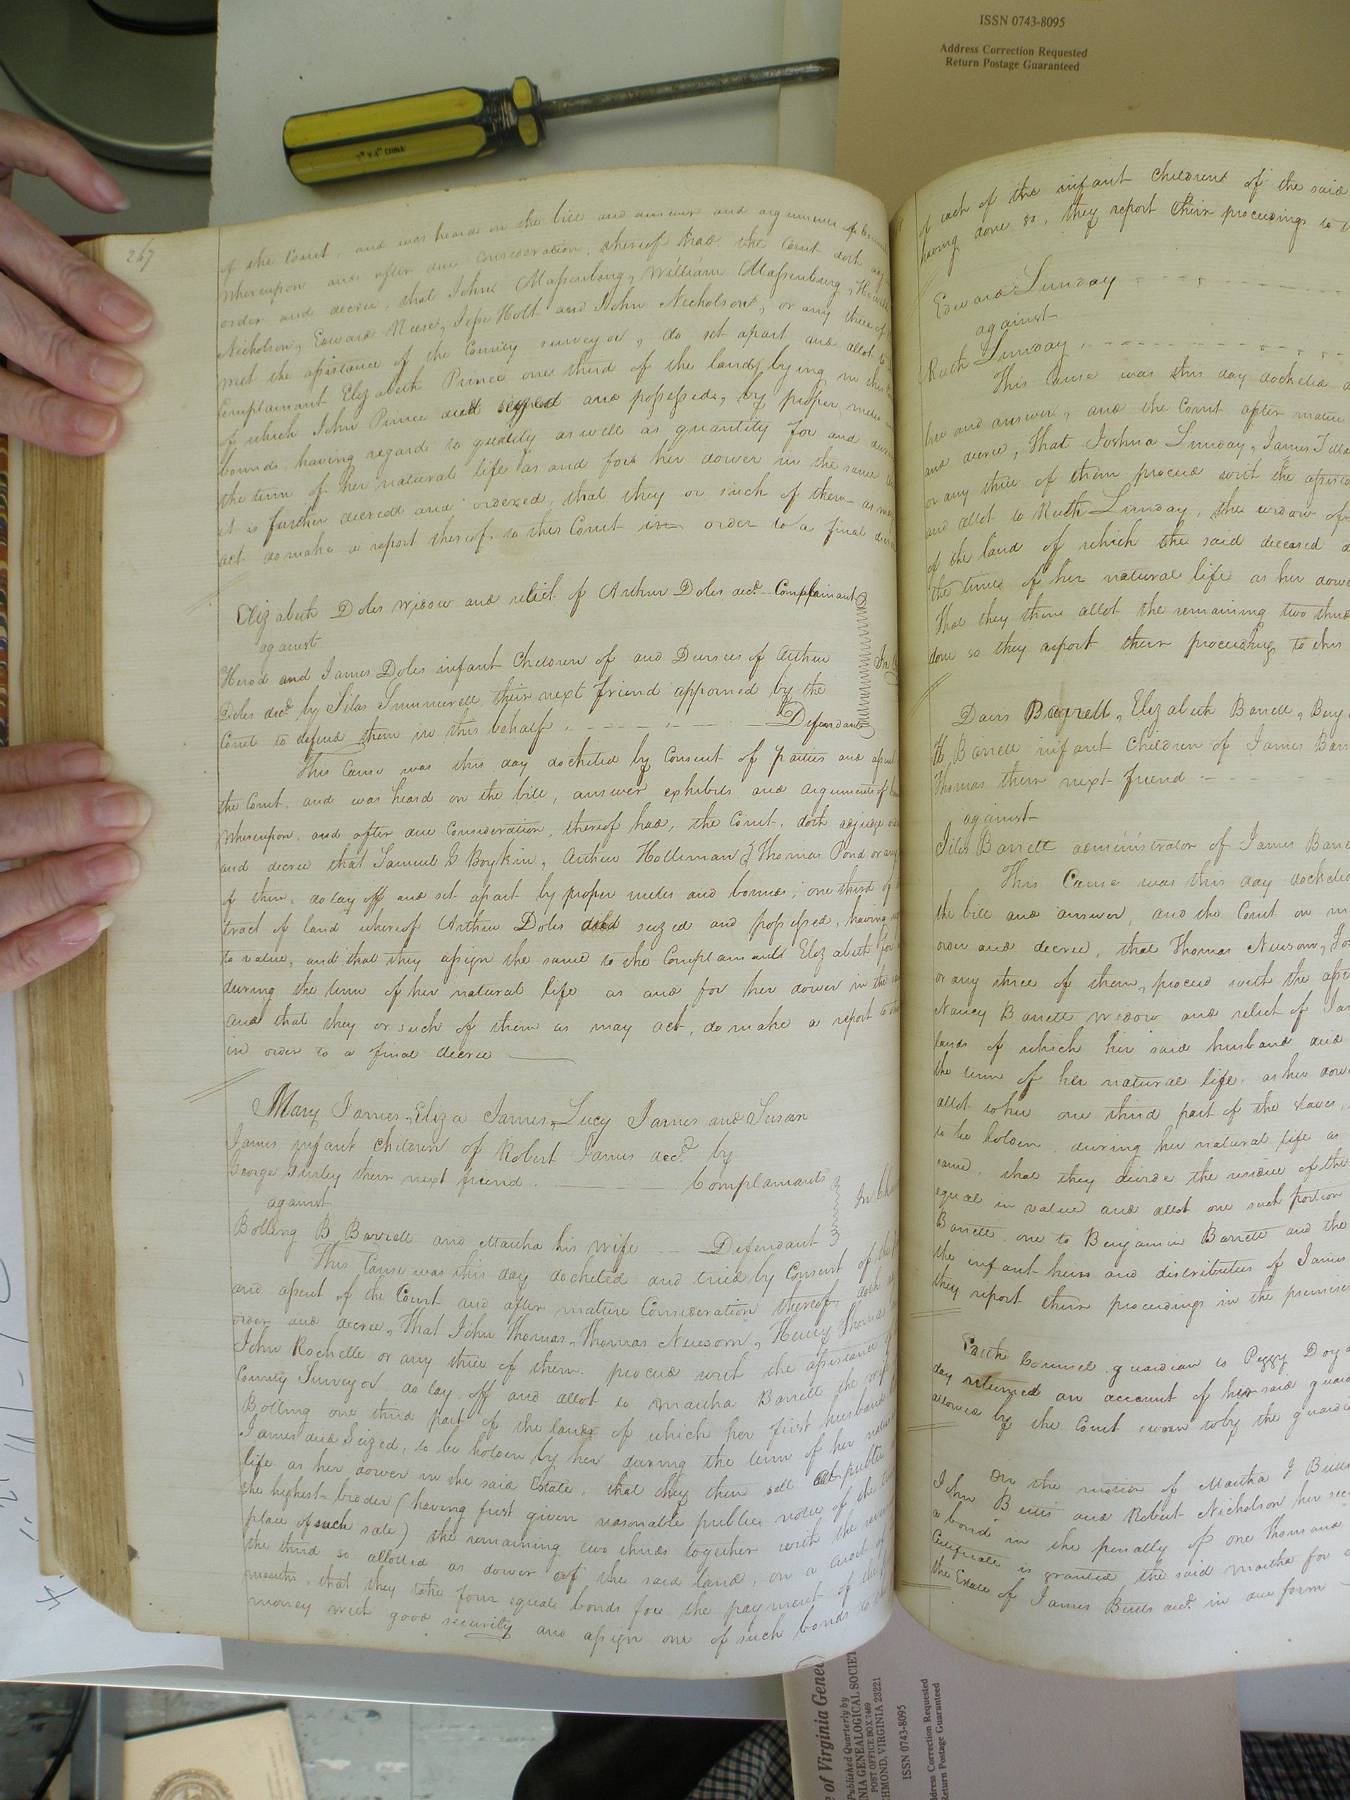 ISSN 0743-8095
Address Correction Requested
Return Postage Guaranteed
CHINA
267
of the Court, and was heard on the bill and answer and arguments of
Whereupon and after due Consideration, thereof had, the Court doth
order and decree, that John Massenburg, William Massenburg,
Nicholson, Edward Reese, Jesse Holt and John Nicholson, or any three of
with the assistance of the County surveyor, do set apart and allot to
Complainant Elizabeth Prince one third of the lands lying in this
of which John Prince died seized and possessed, by proper metes
bounds, having regard to quality as well as quantity for and during
the term of her natural life as and for her dower in the same
it is further decreed and ordered, that they or such of them as may
act do make a report thereof to this Court in order to a final decree
Elizabeth Doles widow and relict of Arthur Doles decd. Complainant
against
Herod and James Doles infant Children of and Devisees of Arthur
Doles decd by Silas Summerell their next friend appointed by the
Court to defend them in this behalf Defendants
This Cause was this day docketed by Consent of parties and
the Court, and was heard on the bill, answer exhibits and arguments of
Whereupon, and after due Consideration, thereof had, the Court, doth adjudge
and decree that Samuel G Boykin, Arthur Holleman & Thomas Pond or any
of them, do lay off and set apart by proper metes and bounds, one third of
tract of land whereof Arthur Doles died seized and possessed, having
to value, and that they assign the same to the Complainant Elizabeth for
during the term of her natural life as and for her dower in the
and that they or such of them as may act, do make a report to
in order to a final decree
Mary James, Eliza James, Lucy James and Susan
James infant children of Robert James decd. by
George Gurley their next friend Complainants
against In
Bolling B Barrett and Martha his wife Defendant
This Cause was this day docketed and tried by Consent of the
and assent of the Court and after mature Consideration thereof, doth
order and decree, That John Thomas, Thomas Newsom, Henry Thomas
John Rochelle or any three of them proceed with the assistance of
County Surveyor do lay off and allot to Martha Barrett the wife
Bolling one third part of the lands of which her first husband
James died Seized, to be holden by her during the term of her natural
life as her dower in the said Estate, that they then sell at public
the highest bidder (having first given reasonable public notice of the
place of such sale) the remaining two thirds together with the
the third so allotted as dower of the said land, on a credit of
months, that they take four equal bonds for the payment of the
money with good security and assign one of such bonds to
of each of the infant Children of the said
having done so, they report their proceedings to
Edward Lunday
against
Ruth Lunday
This Cause was this day docketed
bill and answer, and the Court after mature
and decree, That Joshua Lunday, James
or any three of them proceed with the
and allot to Ruth Lunday, the widow of
of the land of which the said deceased
the time of her natural life as her dower
That they then allot the remaining two thirds
done so they report their proceedings to this
Davis Barrett, Elizabeth Barrett,
H. Barrett infant Children of James
Thomas their next friend
against
Giles Barrett administrator of James
This Cause was this day docketed
the bill and answer, and the Court on
order and decree, that Thomas Newsom,
or any three of them, proceed with the
Nancy Barrett widow and relict of
lands of which her said husband died
the term of her natural life, as her
allot to her one third part of the slaves,
to be holden during her natural life as
same, that they divide the residue of the
equal in value and allot one such portion
Barrett one to Benjamin Barrett and the
the infant heirs and distributees of James
they report their proceedings in the premises
Faith Council guardian to Peggy
day returned an account of her said
allowed by the Court sworn to by the
On the motion of Martha J
John and Robert Nicholson her
a bond in the penalty of one thousand
Certificate is granted the said Martha for
the Estate of James decd. in due form
of Virginia
Published Quarterly by
GENEALOGICAL SOCIETY
POST OFFICE BOX
VIRGINIA 23221
ISSN 0743-8095
Correction Requested
Postage Guaranteed